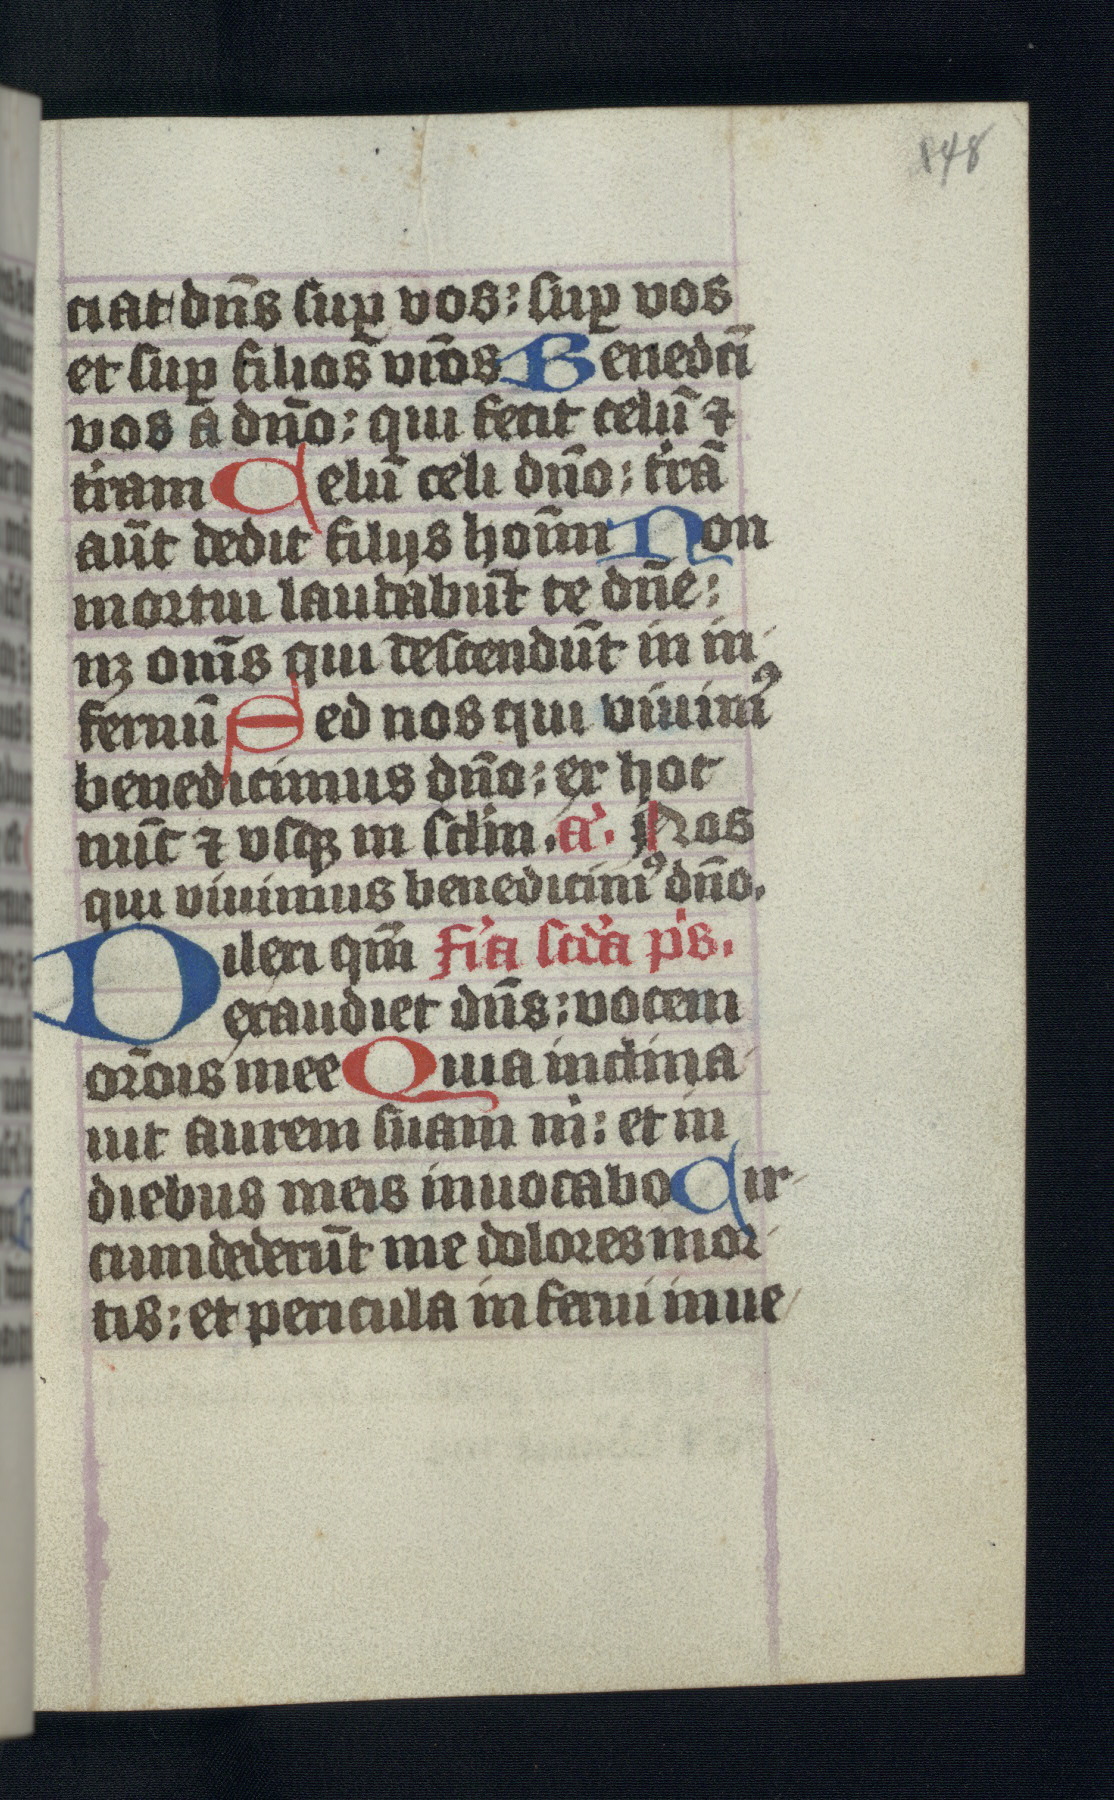 848
ciat dn̄s sup̱ vos: sup̱ vos
et sup̱ filios vr̄os Benedc̄i
vos a dn̄o: qui fecit celū ⁊
t'ram Celū celi dn̄o: t'rā
aūt dedit filijs hoīm Non
mortui laudabūt te dn̄e:
nꝫ om̄s qui descendūt in in-
fernū Sed nos qui viuimꝰ
benedicimus dn̄o: ex hoc
nūc ⁊ vsqꝫ in sclm̄. a'. Nos
qui viuimus benedicimꝰ dn̄o.
Dilexi qm̄ fr̄a scd'a ps̄.
exaudiet dn̄s: vocem
orōis mee Quia inclina-
uit aurem suam m': et in
diebus meis inuocabo Cir-
cumdederūt me dolores mor-
tis: et pericula inferni inue-